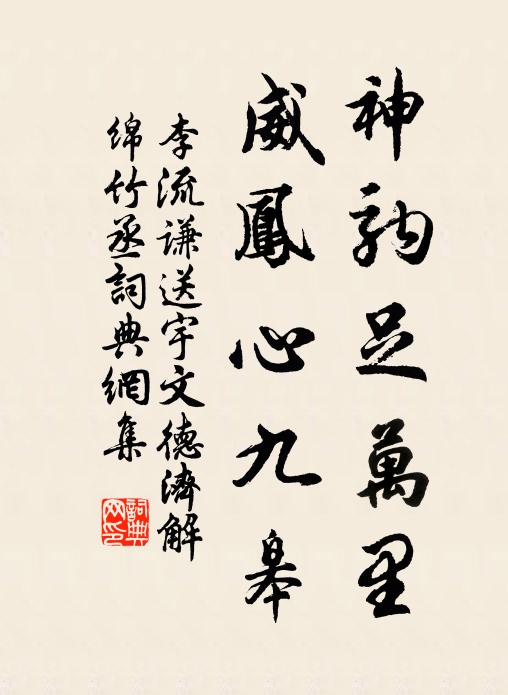 神駒足萬里
威鳳心九皋
李流謙送宇文德濟解
綿竹丞詞典網集
詞典
网印